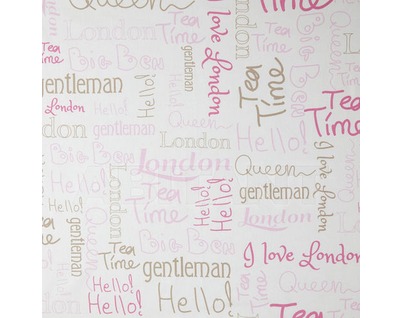 Queen
Tea
Time
I love London
Tea
Time
London
Big Ben
London
gentleman
Hello!
Big Ben
Tea
Time
I love
London
Hello!
Hello!
Queen
Tea
Time
London
gentleman
London
Big Ben
London
Queen
I love London
London
Tea
Time
Hello!
Hello!
gentleman
Hello!
Big Ben
London
Queen
Tea
Time
gentleman
I love London
Hello!
Hello!
Hello!
Hello!
Tea
Time